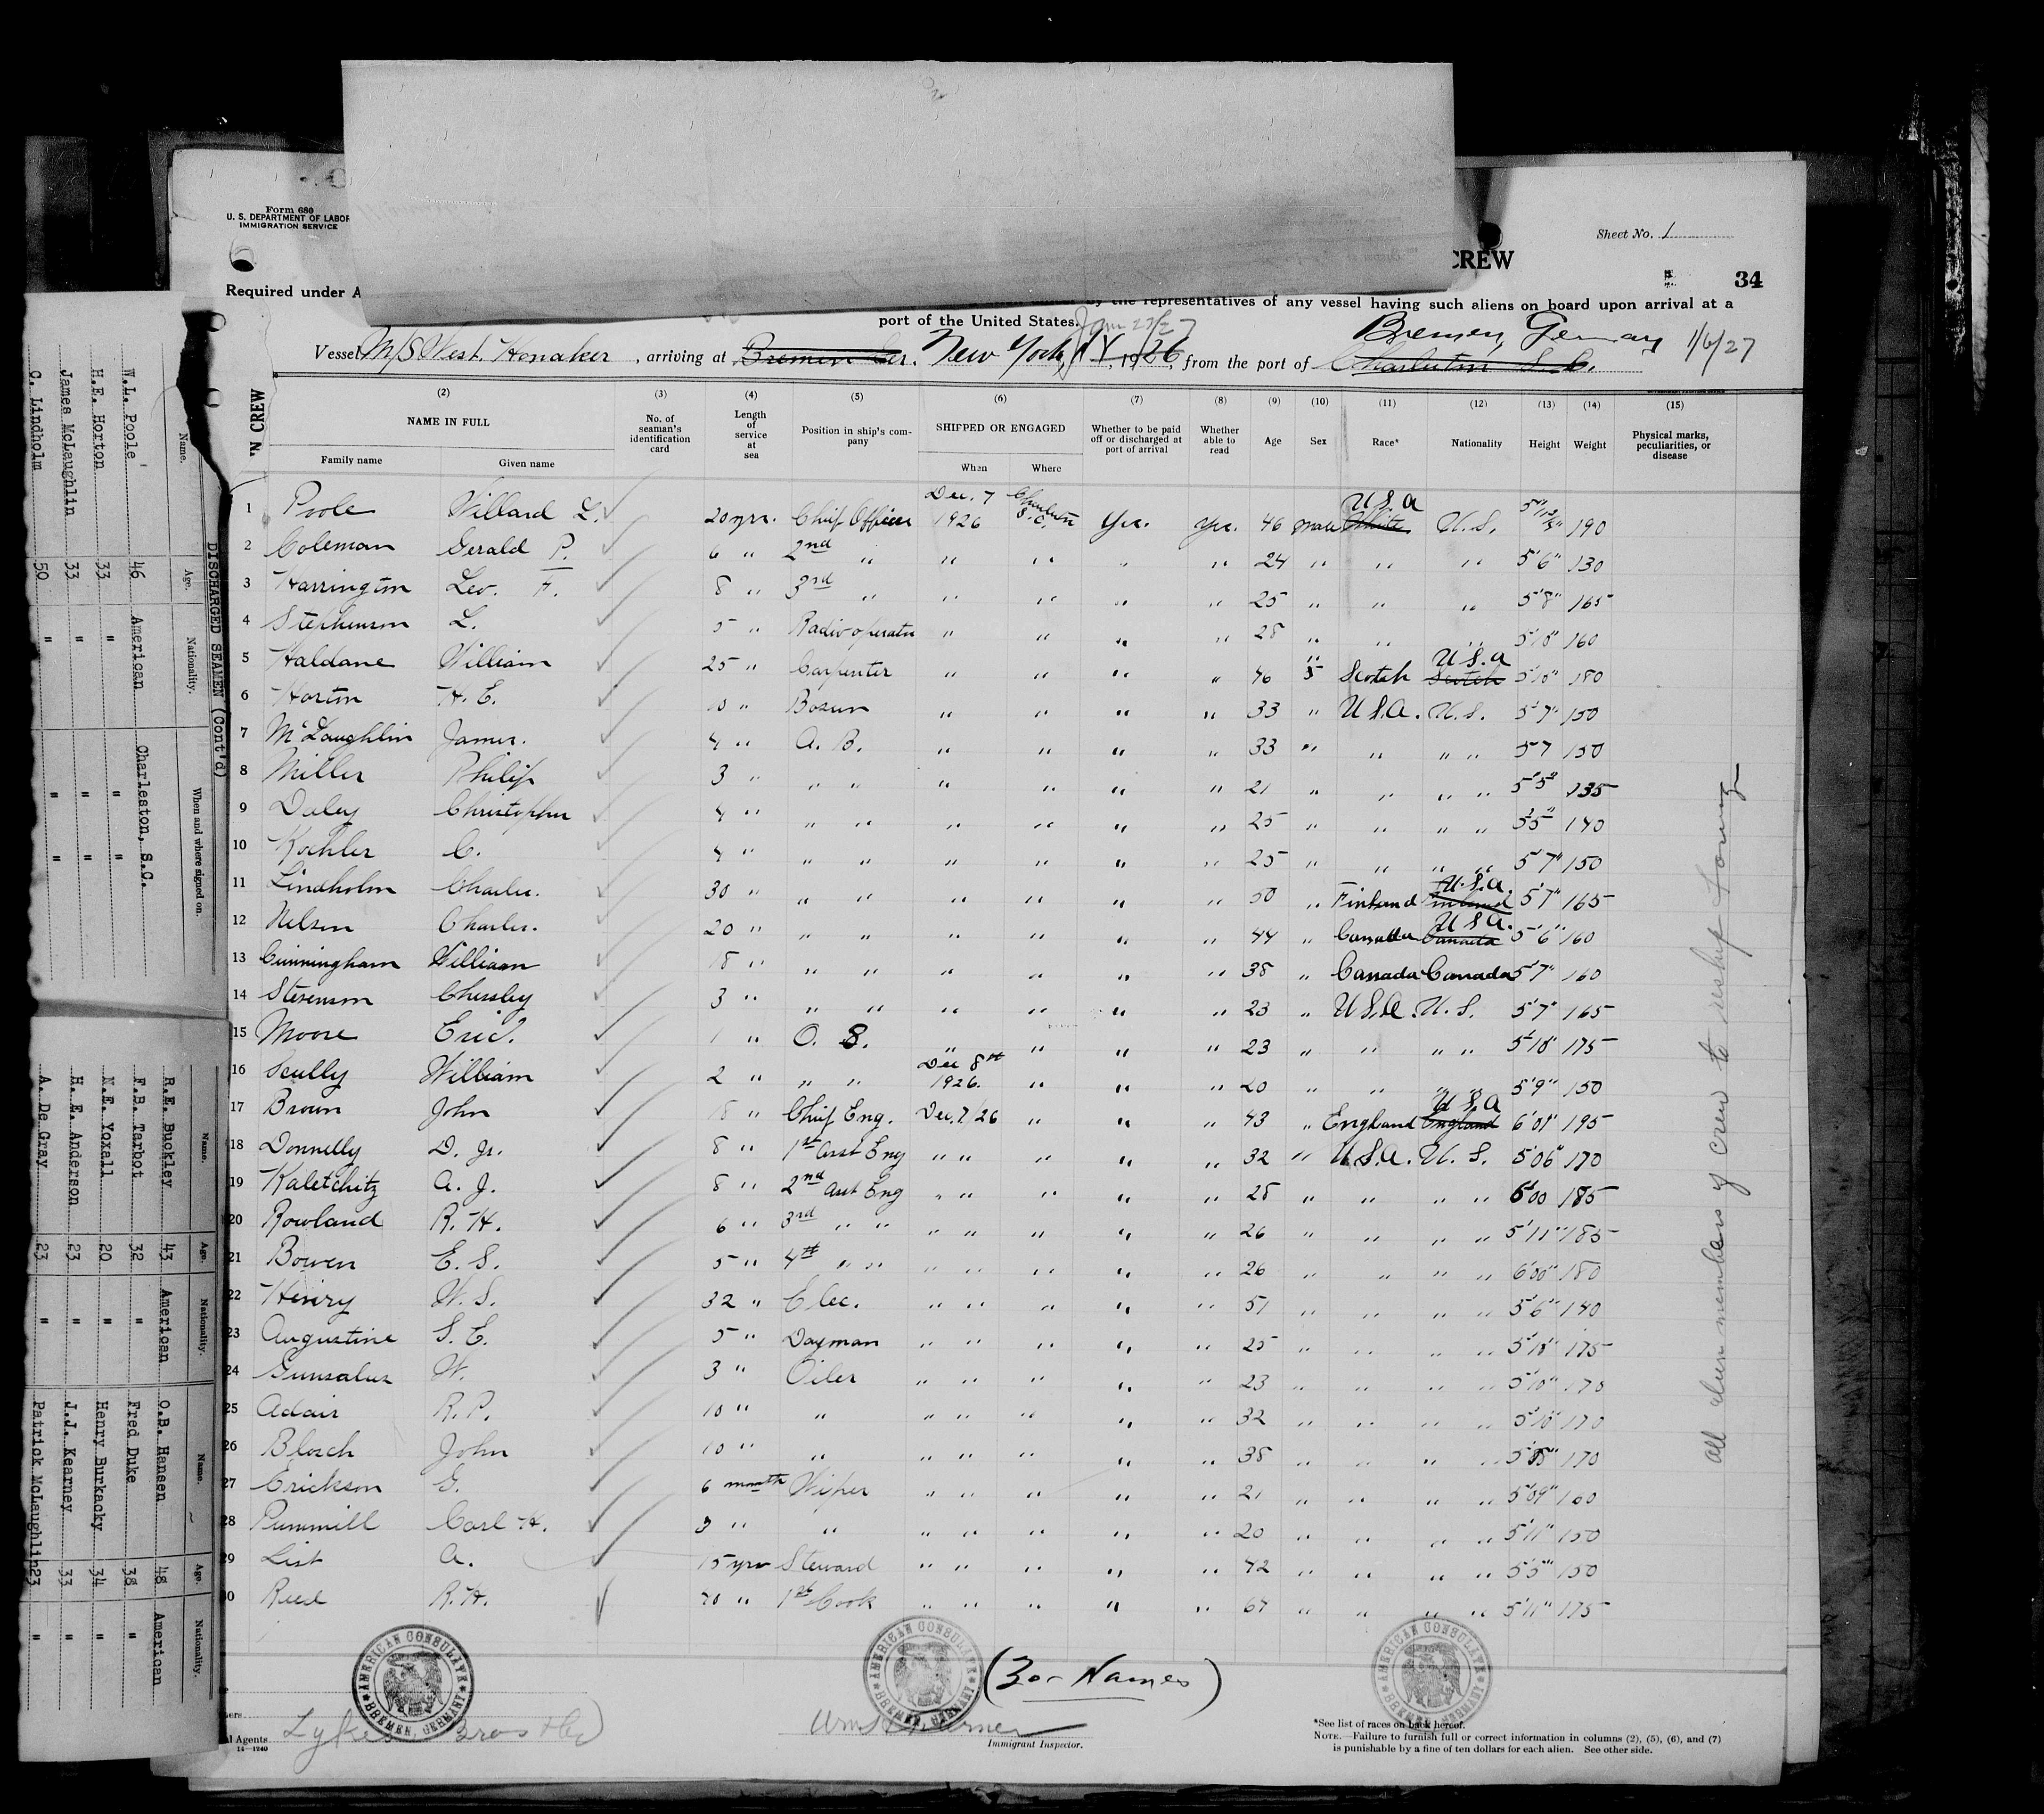 Form 680
U. S. DEPARTMENT OF LABOR
IMMIGRATION SERVICE
Sheet No. 1
CREW
34
Required under A
by the representatives of any vessel having such aliens on board upon arrival at a
port of the United States.
Jan 23/27
Bremen, Germany 1/6/27
Vessel M/S West Honaker, arriving at Bremen Ger. New York, N.Y., 1926, from the port of Charleston S.C.
N CREW
(2) (3) (4) (5) (6) (7) (8) (9) (10) (11) (12) (13) (14) (15)
NAME IN FULL
Family name
Given name
No. of seaman's identification card
Length of service at sea
Position in ship's company
SHIPPED OR ENGAGED
When
Where
Whether to be paid off or discharged at port of arrival
Whether able to read
Age
Sex
Race*
Nationality
Height
Weight
Physical marks, peculiarities, or disease
1 Poole Willard L. 20 yrs. Chief Officer Dec. 7 1926 Charleston S.C. Yes. Yes. 46 Male White U S A U.S. 190
2 Coleman Gerald P. 6 " 2nd " " " " " 24 " " " 5'6" 130
3 Harrington Leo. F. 8 " 3rd " " " " " 25 " " " 5'8" 165
4 Stephenson L. 5 " Radio operator " " " " 28 " " " 5'8" 160
5 Haldane William 25 " Carpenter " " " " 46 " Scotch Scotch U.S.a 5'10" 180
6 Horton H. E. 10 " Bosun " " " " 33 " U.S.A. U.S. 5'7" 150
7 McLaughlin James. 4 " A. B. " " " " 33 " " " " 5'7 150
8 Miller Philip 3 " " " " " " " 21 " " " " 135
9 Daley Christopher 4 " " " " " " " 25 " " " " 140
10 Kochler C. 4 " " " " " " " 25 " " " " 5'7" 150
11 Lindholm Charles. 30 " " " " " " " 50 " Finland Finland U.S.a. 5'7" 165
12 Nelson Charles. 20 " " " " " " " 44 " Canada Canada U S A. 5'6" 160
13 Cunningham William 18 " " " " " " " 38 " Canada Canada 5'7" 160
14 Stevenson Chessley 3 " " " " " " " 23 " U.S.A. U.S. 5'7" 165
15 Moore Eric. 1 " O. S. " " " " 23 " " " " 5'10" 175
16 Scully William 2 " " " Dec 8th 1926. " " " 20 " " " " 5'9" 150
17 Brown John 18 " Chief Eng. Dec. 7/26 " " " 43 " England England U S A 6'01" 195
18 Donnelly D. Jr. 8 " 1st Asst Eng " " " " " 32 " U.S.A. U.S. 5'06" 170
19 Kaletchitz A. J. 8 " 2nd Asst Eng " " " " " 28 " " " " 6'00 185
20 Rowland R. H. 6 " 3rd " " " " " " " 26 " " " " 5'11" 185
21 Bowen E. S. 5 " 4th " " " " " " " 26 " " " " 6'00" 180
22 Henry W. S. 32 " Elec. " " " " " 51 " " " " 5'6" 140
23 Augustine S. E. 5 " Dayman " " " " " 25 " " " " 5'10" 175
24 Gunsalus W. 3 " Oiler " " " " " 23 " " " " 5'10" 170
25 Adair R. P. 10 " " " " " " " 32 " " " " 5'10" 170
26 Bloch John 10 " " " " " " " 38 " " " " 5'8" 170
27 Erickson G. 6 month Wiper " " " " " 21 " " " " 5'09" 160
28 Pummill Carl H. 3 " " " " " " " 20 " " " " 5'11" 150
29 List A. 15 yrs Steward " " " " " 42 " " " " 5'5" 150
30 Reed R. H. 40 " 1st Cook " " " " " 67 " " " " 5'11" 175
All alien members of crew to reship foreign
(30 - Names)
AMERICAN CONSULATE BREMEN, GERMANY
AMERICAN CONSULATE BREMEN, GERMANY
AMERICAN CONSULATE BREMEN, GERMANY
Lykes Bros
Immigrant Inspector.
l Agents
14—1240
*See list of races on back hereof.
NOTE.—Failure to furnish full or correct information in columns (2), (5), (6), and (7)
is punishable by a fine of ten dollars for each alien. See other side.
DISCHARGED SEAMEN (Cont'd)
Name. Age. Nationality. When and where signed on.
W.L. Poole 46 American Charleston, S.C.
H.E. Horton 33 " " "
James McLaughlin 33 " " "
C. Lindholm 50 " " "
Name. Age. Nationality. Name. Age. Nationality.
R.E. Buckley 43 American O.B. Hansen 48 American
F.B. Tarbot 32 " Fred Duke 38 "
N.E. Yoxall 20 " Henry Burkacky 34 "
H. E. Anderson 23 " J.J. Kearney 33 "
A. De Gray 23 " Patrick McLaughlin 23 "